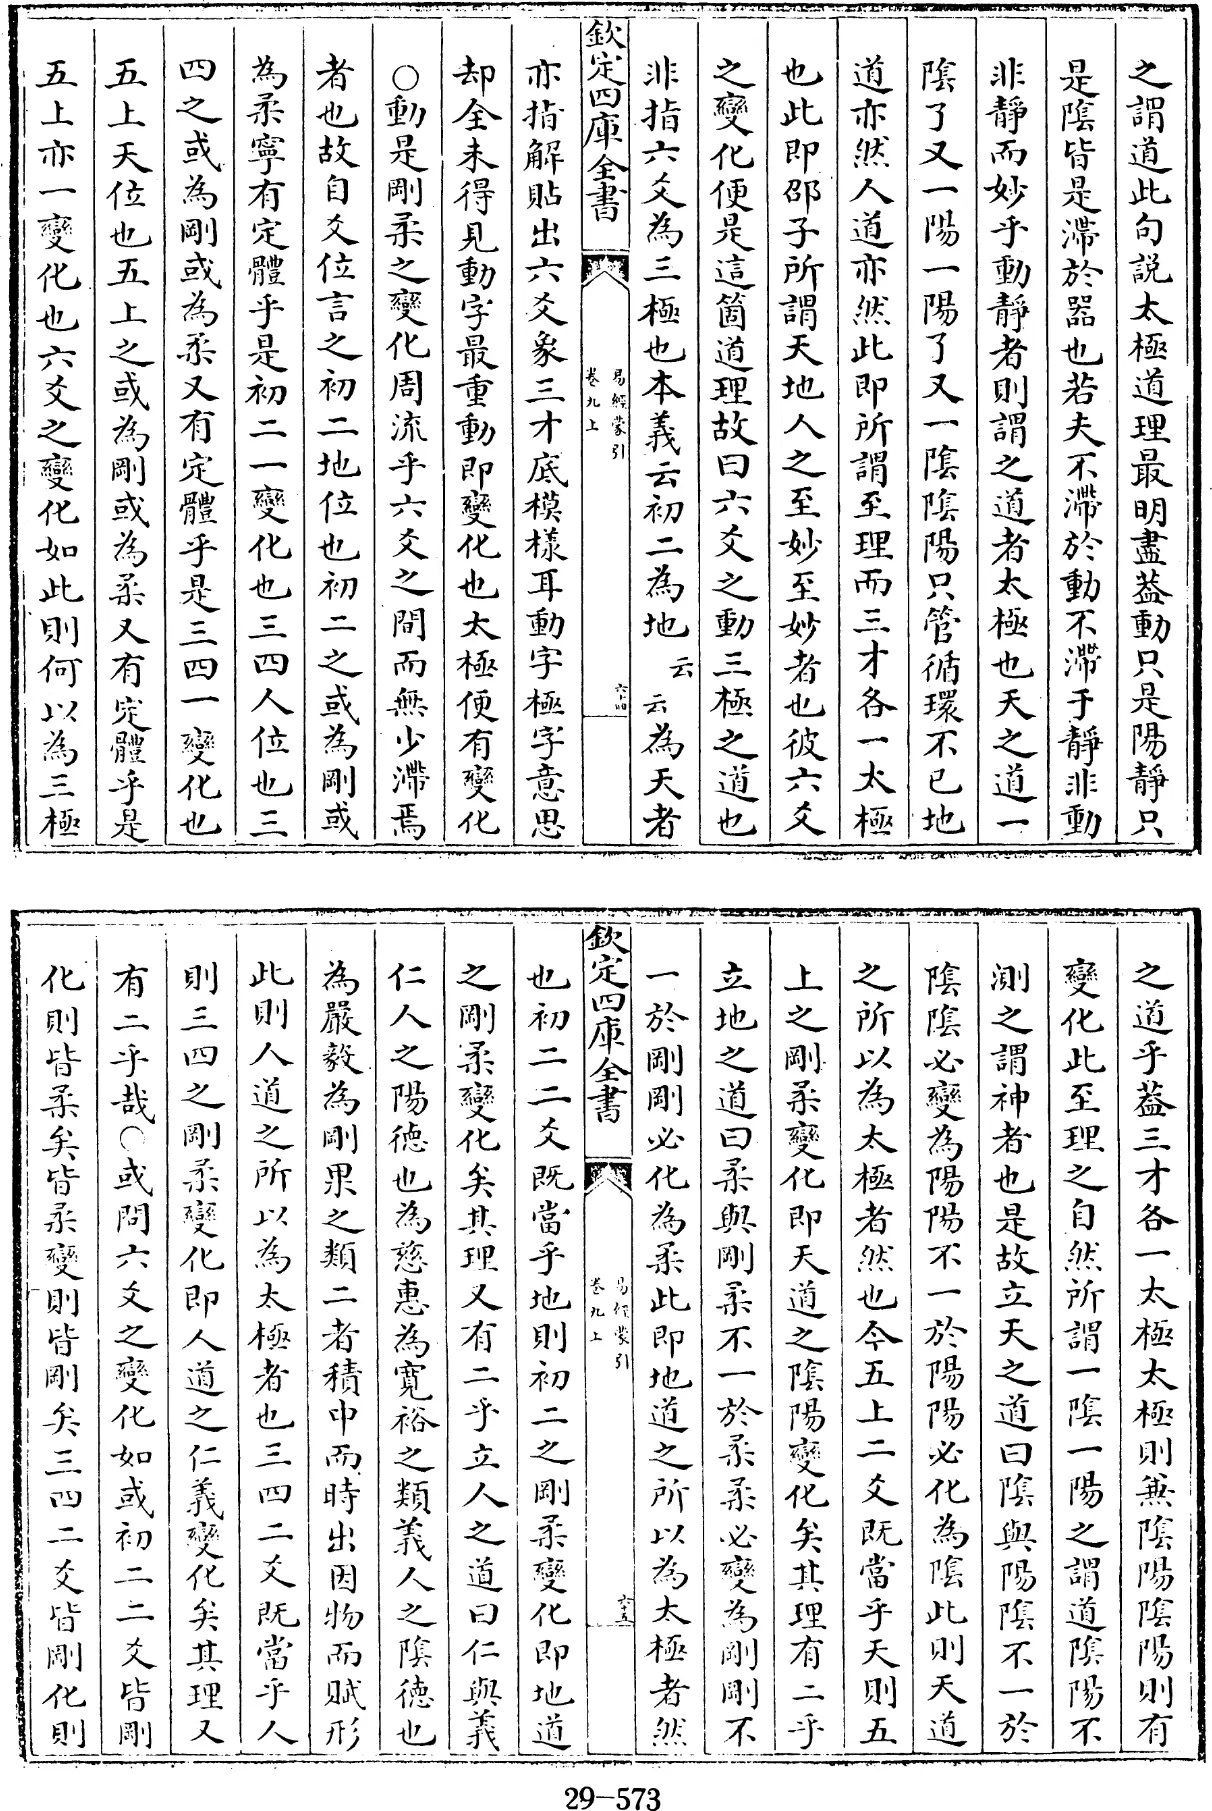 之謂道此句説太極道理最明盡葢動只是陽靜只
是陰皆是滯於器也若夫不滯於動不滯于靜非動
非靜而妙乎動靜者則謂之道者太極也天之道一
陰了又一陽一陽了又一陰陰陽只管循環不已地
道亦然人道亦然此即所謂至理而三才各一太極
也此即邵子所謂天地人之至妙至妙者也彼六爻
之變化便是這箇道理故曰六爻之動三極之道也
非指六爻為三極也本義云初二為地云云為天者
欽定四庫全書
易經蒙引
卷九上
六十四
亦指解貼出六爻象三才底模樣耳動字極字意思
却全未得見動字最重動即變化也太極便有變化
○動是剛柔之變化周流乎六爻之間而無少滯焉
者也故自爻位言之初二地位也初二之或為剛或
為柔寧有定體乎是初二一變化也三四人位也三
四之或為剛或為柔又有定體乎是三四一變化也
五上天位也五上之或為剛或為柔又有定體乎是
五上亦一變化也六爻之變化如此則何以為三極
之道乎葢三才各一太極太極則兼陰陽陰陽則有
變化此至理之自然所謂一陰一陽之謂道陰陽不
測之謂神者也是故立天之道曰陰與陽陰不一於
陰陰必變為陽陽不一於陽陽必化為陰此則天道
之所以為太極者然也今五上二爻既當乎天則五
上之剛柔變化即天道之陰陽變化矣其理有二乎
立地之道曰柔與剛柔不一於柔柔必變為剛剛不
一於剛剛必化為柔此即地道之所以為太極者然
欽定四庫全書
易經蒙引
卷九上
六十五
也初二二爻既當乎地則初二之剛柔變化即地道
之剛柔變化矣其理又有二乎立人之道曰仁與義
仁人之陽德也為慈惠為寛裕之類義人之陰德也
為嚴毅為剛果之類二者積中而時出因物而賦形
此則人道之所以為太極者也三四二爻既當乎人
則三四之剛柔變化即人道之仁義變化矣其理又
有二乎哉○或問六爻之變化如或初二二爻皆剛
化則皆柔矣皆柔變則皆剛矣三四二爻皆剛化則
29-573